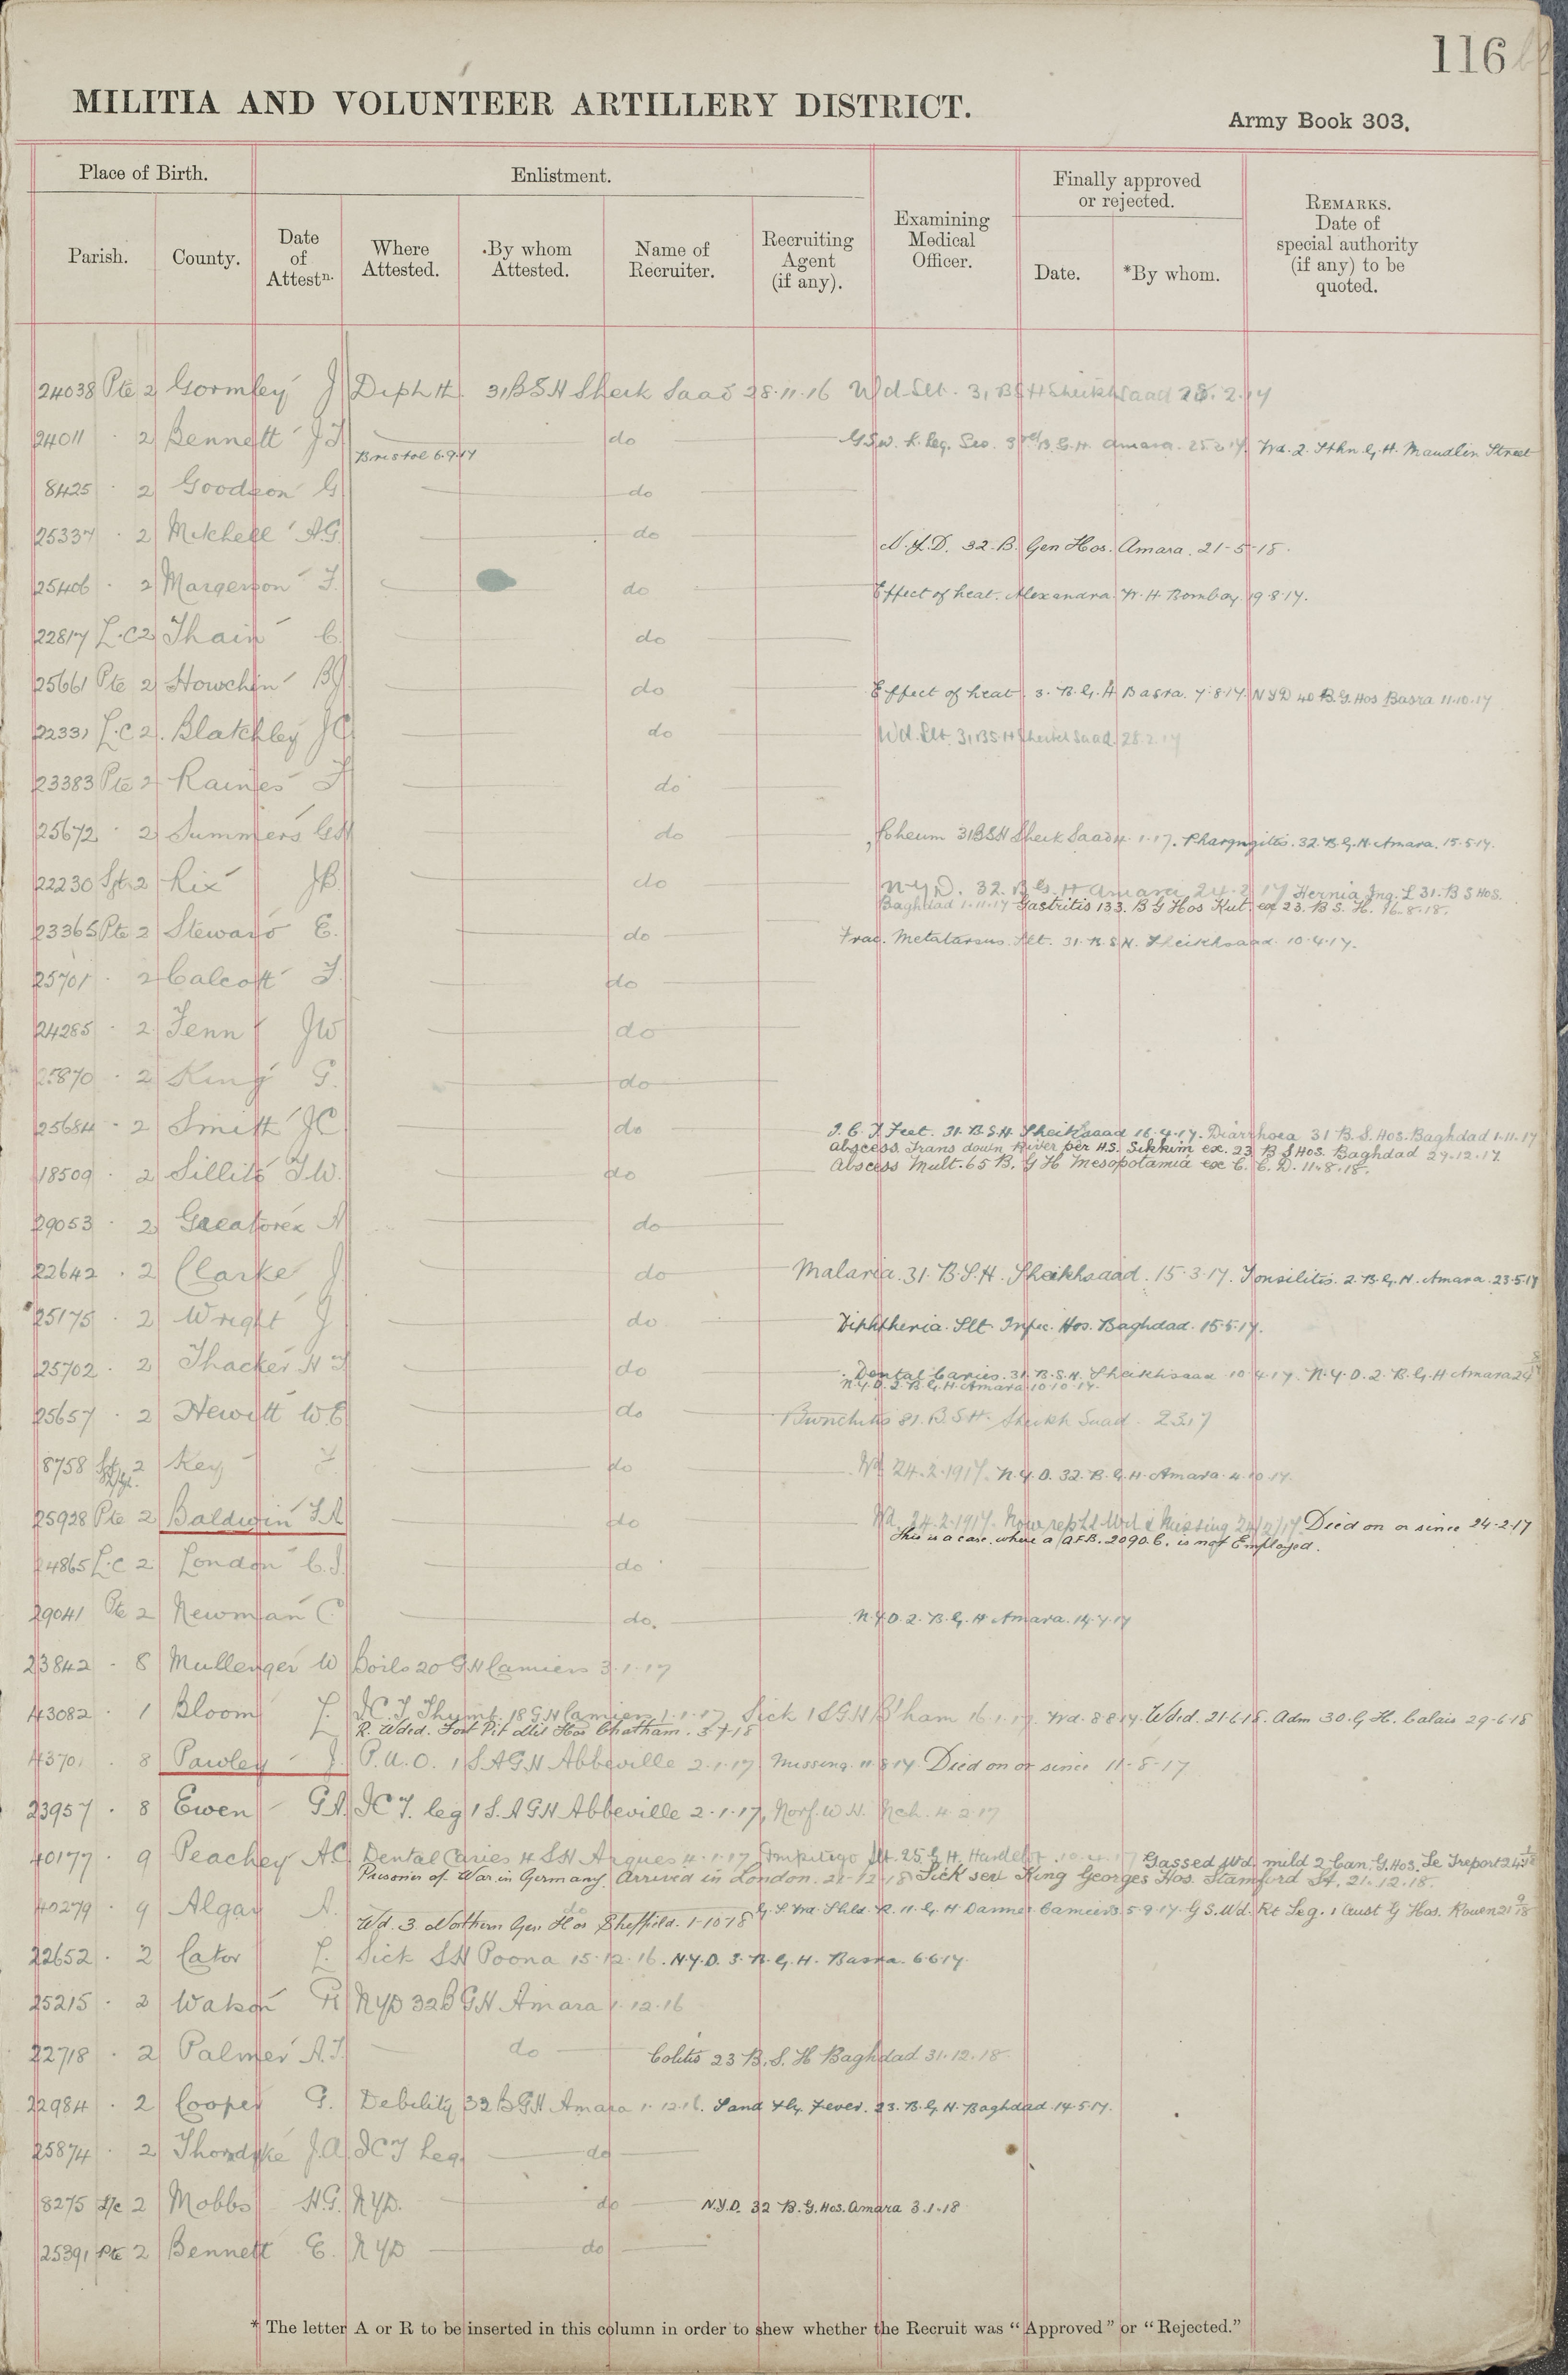 116
MILITIA AND VOLUNTEER ARTILLERY DISTRICT.
Army Book 303.
Place of Birth.
Enlistment.
Finally approved or rejected.
Parish.
County.
Date of Attestn.
Where Attested.
By whom Attested.
Name of Recruiter.
Recruiting Agent (if any).
Examining Medical Officer.
Date.
*By whom.
REMARKS. Date of special authority (if any) to be quoted.
24038 Pte 2 Gormley J Diphth. 31 BSH Sheik Saad 28.11.16 Wd Slt. 31 BSH Sheikh Saad 28.2.17
24011 · 2 Bennett J do G.S.W. Leg. Sev. B.G.H. Amara. Wd. 2. Sthn G.H. Maudlin Street
Bristol 6.9.17
8425 · 2 Goodson G do
25337 · 2 Mitchell A.G. do N.Y.D. 32. B. Gen Hos. Amara. 21-5-18.
25406 · 2 Margerson F. do Effect of heat. Alexandra W.H. Bombay 19.8.17.
22817 L.C 2 Thain C. do
25661 Pte 2 Howchin do Effect of heat. 3. B.G.H Basra. 7.8.17. NYD 40 B.G.Hos Basra 11.10.17
L.C 2 Blatchley J.C. do Wd. Slt. 31 BSH Sheikh Saad 28.2.17
23383 Pte 2 Raines do
25672 · 2 Summers do 31 BSH Sheik Saad 4.1.17. Pharyngitis. 32. B.G.H. Amara. 15.5.17.
22230 Sgt 2 Rix J.B. do N.Y.D. 32. B.G.H Amara 24.2.17 Hernia Ing. L 31. B S Hos.
Baghdad 1.11.17 Gastritis 133. B G Hos Kut. ex 23. B S. H. 16.8.18.
23365 Pte 2 Steward E. do Frac. Metatarsus Slt. 31. B.S.H. Sheikhsaad 10.4.17.
25701 · 2 Calcott do
24285 · 2 Fenn J.W do
25870 · 2 King G. do
25684 · 2 Smith J.C do I.C.T. Feet. 31. B.S.H. Sheikhsaad 16.4.17. Diarrhoea 31 B.S. Hos. Baghdad 1.11.17
abscess Trans down River per H.S. Sikkim ex. 23 B S Hos. Baghdad 29.12.17
18509 · 2 Sillis do Abscess Mult. 65 B. G H Mesopotamia ex C.C.D. 11.8.18.
29053 · 2 Greatorex A do
22642 · 2 Clarke J. do Malaria. 31. B.S.H. Sheikhsaad. 15.3.17. Tonsilitis. 2. B.G.H. Amara. 23.5.17
25175 · 2 Wright J do Diphtheria. Slt. Infec. Hos. Baghdad. 15.5.17.
25702 · 2 Thacker do Dental Caries. 31. B.S.H. Sheikhsaad 10.4.17. N.Y.D. 2. B.G.H Amara
N.Y.D. 2. B.G.H. Amara 10.10.17.
25657 · 2 Hewitt do Bronchitis B.S.H. Sheikh Saad.
8758 2 Key do Wd 24.2.1917. N.Y.D. 32. B.G.H. Amara. 4.10.17.
25928 Pte 2 Baldwin do Wd. 24.2.1917. Now reptd Wd & Missing 24/2/17 Died on or since 24-2-17
This is a case where a A.F.B. 2090.C. is not Employed.
L.C 2 London C.J. do
29041 Pte 2 Newman C. do. N.Y.D. 2. B.G.H Amara. 14.7.17
23842 · 8 Mullenger W Boils 20 G.H Camiers 3.1.17
43082 · 1 Bloom 18 G.H Camiers 1.1.17 Sick 1 S.G.H B'ham 16.1.17. Wd. 8.8.17. Wdd. 21.6.18. Adm 30. G.H. Calais 29.6.18
R. Wded. Fort Pit Mil Hos Chatham. 3.7.18
8 Pawley J. P.U.O. 1 S.A G H Abbeville 2.1.17 Missing 11.8.17 Died on or since 11-8-17
23957 · 8 Ewen G.A. I.C.T. leg 1 S.A G H Abbeville 2.1.17, Norf. W.H. Nch. 4.2.17
40177 · 9 Peachey Dental Caries 4 S.H Arques 4.1.17 Impetigo Slt. 25 G.H. Hardelot Gassed Wd. mild 2 Can. G. Hos. Le Treport
Prisoner of War in Germany Arrived in London. 21-12-18 Sick ser King Georges Hos. Stamford St. 21.12.18.
40279 · 9 Algar A. do G S Wd. Shld. R. 11. G.H Dannes Camiers 5.9.17. G S. Wd. Rt Leg. 1 Aust G Hos. Rouen
Wd. 3. Northern Gen. Hos Sheffield. 1-10-18
22652 · 2 Cator Sick S.H Poona 15.12.16. N.Y.D. 3. B.G.H. Basra. 6.6.17.
25215 · 2 Watson NYD 32 B G H Amara 1.12.16
22718 · 2 Palmer do Colitis 23 B.S.H Baghdad 31.12.18.
22984 · 2 Cooper G. Debility 32 B G H Amara 1.12.16. Sand Fly Fever. 23. B.G.H. Baghdad. 14.5.17.
25874 · 2 Thorndyke J.A. I C T Leg do
8275 L/c 2 Mobbs H.G. NYD. do N.Y.D. 32 B.G. Hos. Amara 3.1.18
25391 Pte 2 Bennett E. NYD do
* The letter A or R to be inserted in this column in order to shew whether the Recruit was "Approved" or "Rejected."